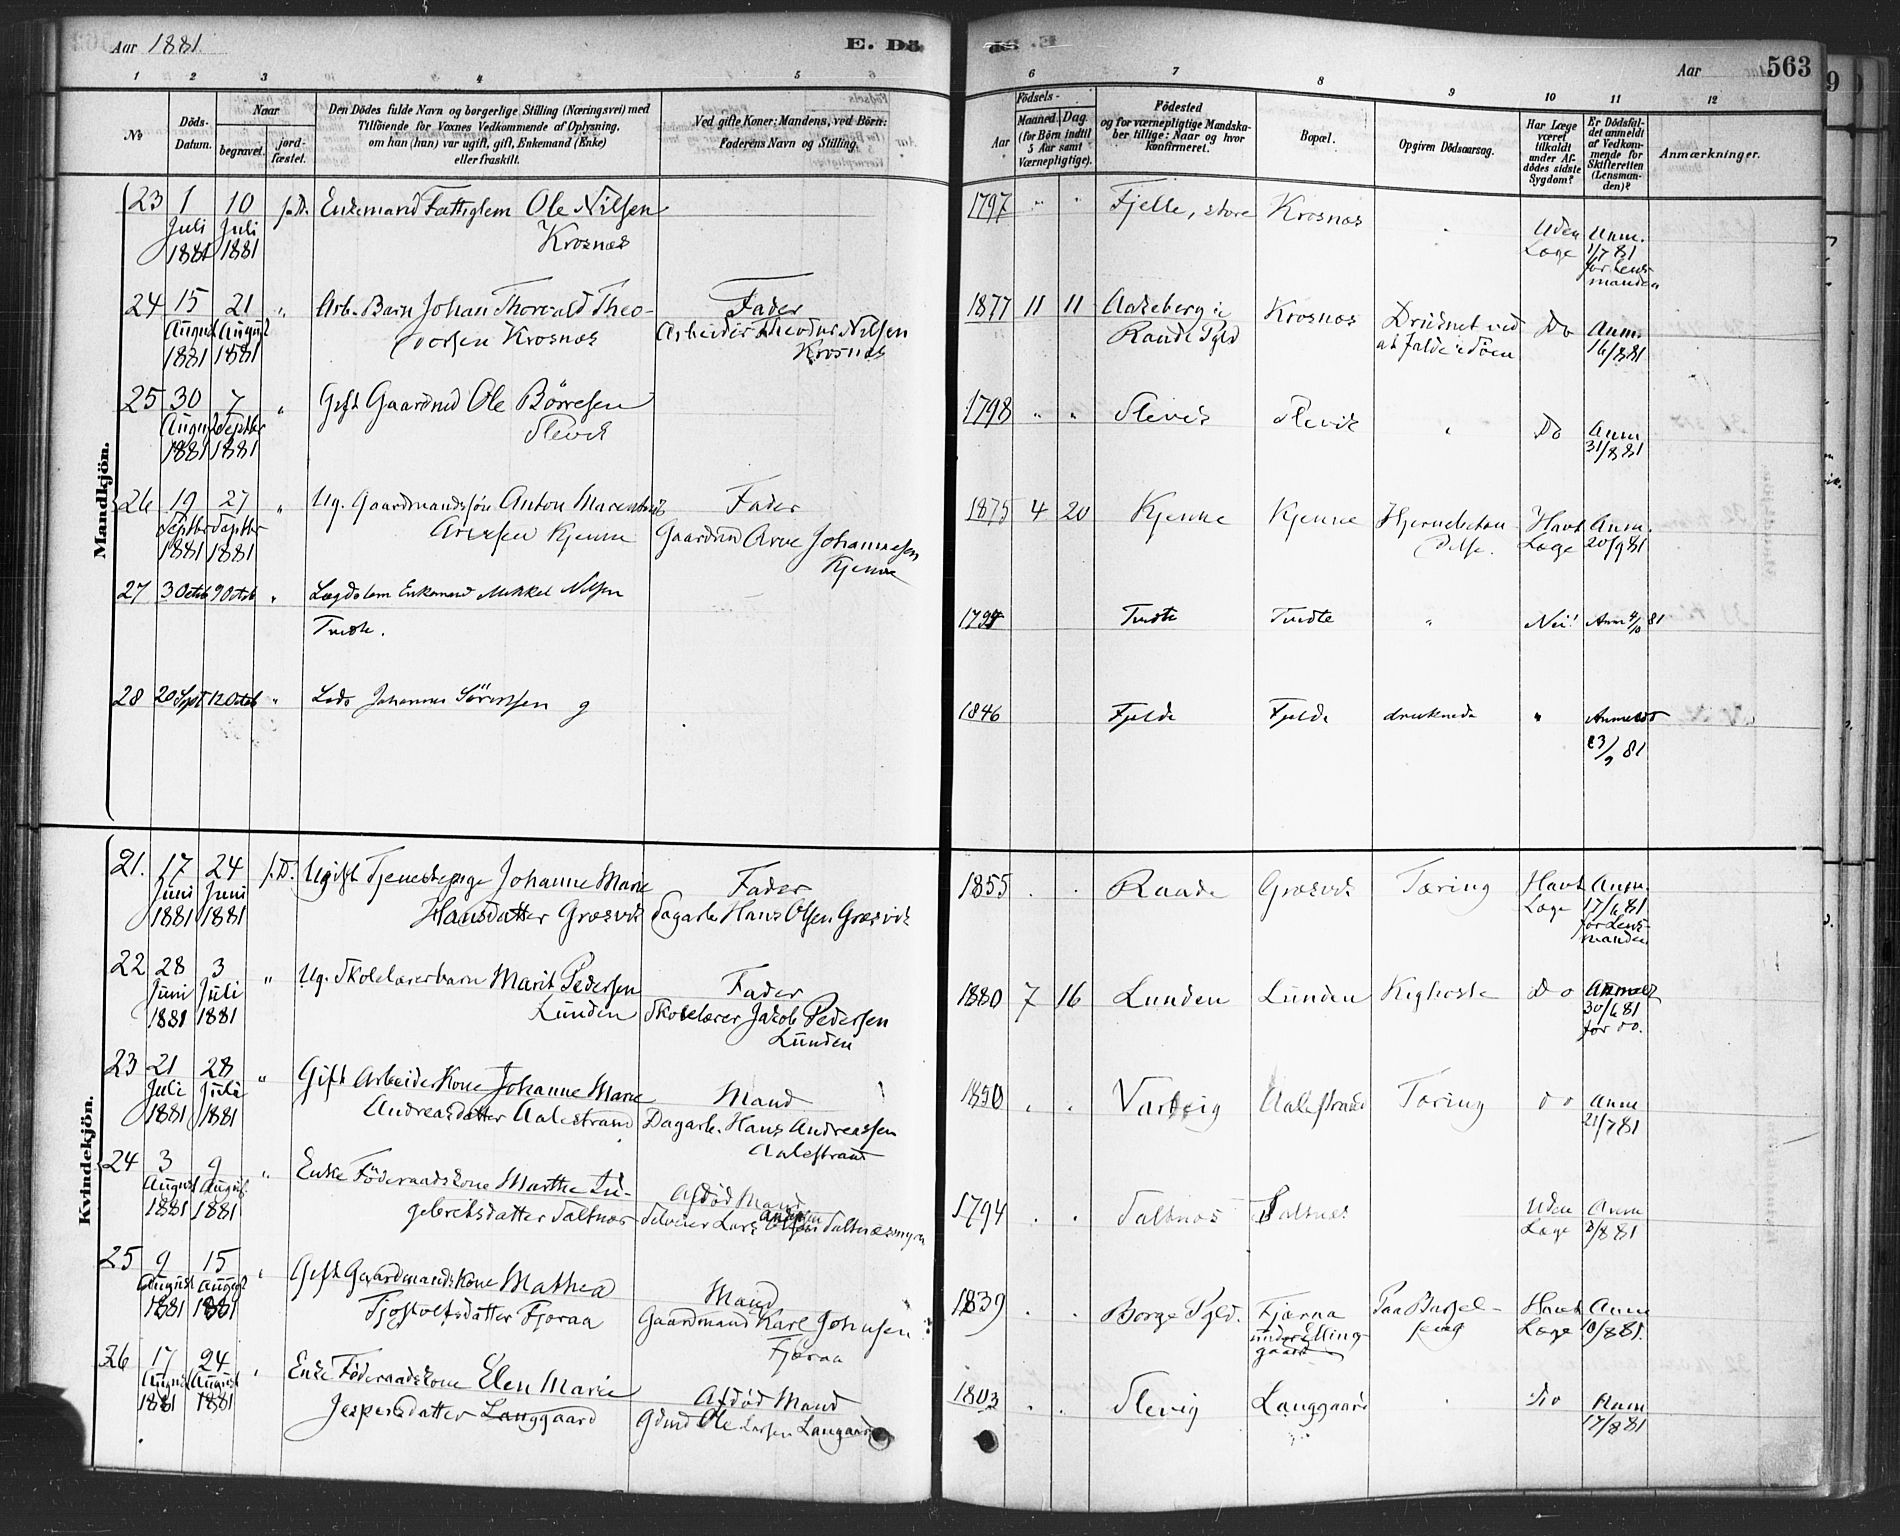 Aar 1881.
E. Dö
Aar
563
1 2 3 4 5 6 7 8 9 10 11 12
No
Döds-Datum.
Naar
begravet.
jord-fæstet.
Den Dödes fulde Navn og borgerlige Stilling (Næringsvei) med
Tilföiende for Voxnes Vedkommende af Oplysning,
om han (hun) var ugift, gift, Enkemand (Enke)
eller fraskilt.
Ved gifte Koner: Mandens, ved Börn:
Faderens Navn og Stilling.
Födsels-
Aar
Maaned Dag
(for Börn indtil
5 Aar samt
Værnepligtige).
Födested
og for værnepligtige Mandska-
ber tillige: Naar og hvor
konfirmeret.
Bopæl.
Opgiven Dödsaarsag.
Har Læge
været
tilkaldt
under Af-
dödes sidste
Sygdom?
Er Dödsfal-
det anmeldt
af Vedkom-
mende for
Skifteretten
(Lensman-
den)?
Anmærkninger.
Mandkjön.
23 1 Juli 1881 10 Juli 1881 s.D. Enkemand Fattiglem Ole Nilsen
Krosnæs
1797 " " Fjelle, store Krosnæs Uden Læge Anm. 1/7 81 for Lens-manden
24 15 August 1881 21 August 1881 " Arb. Barn Johan Thorvald Theo-
dorsen Krosnæs
Fader
Arbeider Theodor Nilsen
Krosnæs
1877 11 11 Aakeberg i
Raade Pgld Krosnæs Druknet ved
at falde i Söen Do Anm. 16/8 81
25 30 August 1881 7 Septbr 1881 " Gift Gaardmd Ole Börresen
Slevik
1798 " " Slevik Slevik " Do Anm 31/8 81
26 19 Septbr 1881 27 Septbr 1881 " Ug. Gaardmandssön Anton
Arvesen Kjenne
Fader
Gaardmd Arve Johannesen
Kjenne
1875 4 20 Kjenne Kjenne Havt Læge Anm. 20/9 81
27 3 Octob 9 Octob " Lægdslem Enkemand Mikkel Nilsen
Tvedte.
Tvedte Tvedte " Nei! Anm 4/10 81
28 20 Sept 12 Octob " Lods Johannes Sörensen g
1846 Fjelde Fjelde druknede " Anmeldt
23/9 81
Kvindekjön.
21. 17 Juni 1881 24 Juni 1881 s.D. Ugift Tjenestepige Johanne Marie
Hansdatter Græsvik
Fader
Dagarb. Hans Olsen Græsvik
1855 . . Raade Græsvik Tæring Havt Læge Anm. 17/6 81 for Lens-manden
22 28 Juni 1881 3 Juli 1881 " Ug. Skolelærerbarn Marit Pedersen
Lunden
Fader
Skolelærer Jakob Pedersen
Lunden
1880 7 16 Lunden Lunden Kighoste Do Anmeldt 30/6 81 for do.
23 21 Juli 1881 28 Juli 1881 " Gift Arbeider Kone Johanne Marie
Andreasdatter Aalestrand
Mand
Dagarb. Hans Andreassen
Aalestrand
1850 . . Varteig Aalestrand Tæring do Anm 21/7 81
24 3 August 1881 9 August 1881 " Enke Föderaadskone Marthe In-
gebretsdatter Saltnæs
Afdöd Mand
Selveier Lars Saltnæsmyra
1794 . . Saltnæs Saltnæs Uden Læge Anm 3/8 81
25 9 August 1881 15 August 1881 " Gift Gaardmands Kone Mathea
Tjöstolfsdatter Fjæraa
Mand
Gaardmand Karl Johnsen
Fjæraa
1839 . . Borge Pgld. Fjæraa
under Elling-
gaard Paa Barsel-
seng Havt Læge Anm 10/8 81.
26 17 August 1881 24 August 1881 " Enke Föderaadskone Elen Marie
Jespersdatter Langgaard
Afdöd Mand
Gdmd Ole Larsen Langaard
1803 . . Slevig Langgaard . Do Anm 17/8 81